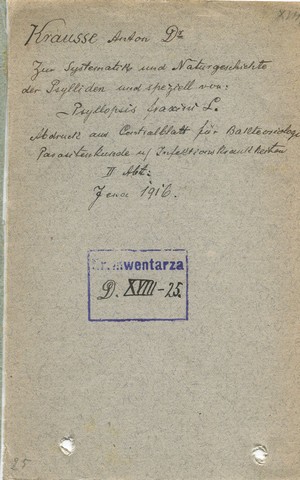 Krausse Anton Dr.
Zur Systematik und Naturgeschichte
der Psylliden und speziell von:
Psyllopsis fraxini L.
Abdruck aus Centralblatt für Bakteriologie
Parasitenkunde u/ Infektionskrankheiten
II Abt:
Jena 1916.
Nr. inwentarza
D. XVIII-25.
25